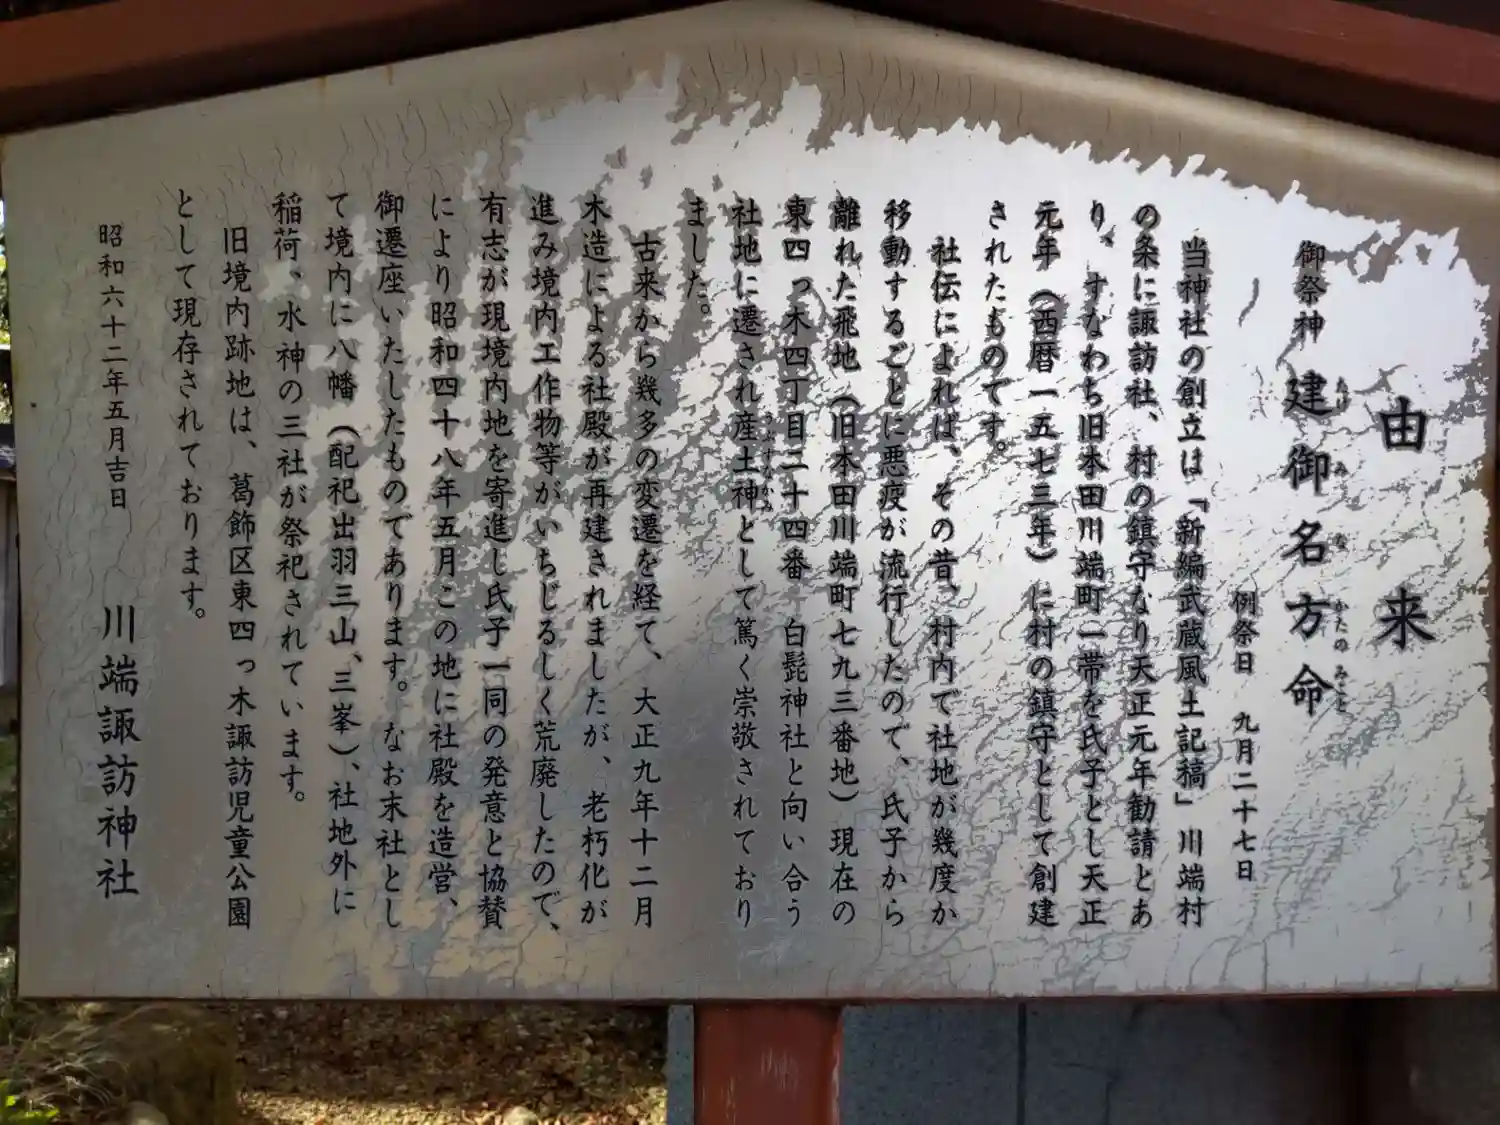 由来
御祭神 建御名方命
たけみなかたのみこと
例祭日 九月二十七日
当神社の創立は「新編武蔵風土記稿」川端村
の条に諏訪社、村の鎮守なり天正元年勧請とあ
り、すなわち旧本田川端町一帯を氏子とし天正
元年（西暦一五七三年）に村の鎮守として創建
されたものです。
社伝によれば、その昔、村内で社地が幾度か
移動するごとに悪疫が流行したので、氏子から
離れた飛地（旧本田川端町七九三番地）現在の
東四っ木四丁目二十四番 白髭神社と向い合う
社地に遷され産土神として篤く崇敬されており
うぶすなかみ
ました。
古来から幾多の変遷を経て、大正九年十二月
木造による社殿が再建されましたが、老朽化が
進み境内工作物等がいちじるしく荒廃したので、
有志が現境内地を寄進し氏子一同の発意と協賛
により昭和四十八年五月この地に社殿を造営、
御遷座いたしたものであります。なお末社とし
て境内に八幡（配祀出羽三山、三峯）、社地外に
稲荷、水神の三社が祭祀されています。
旧境内跡地は、葛飾区東四っ木諏訪児童公園
として現存されております。
昭和六十二年五月吉日 川端諏訪神社